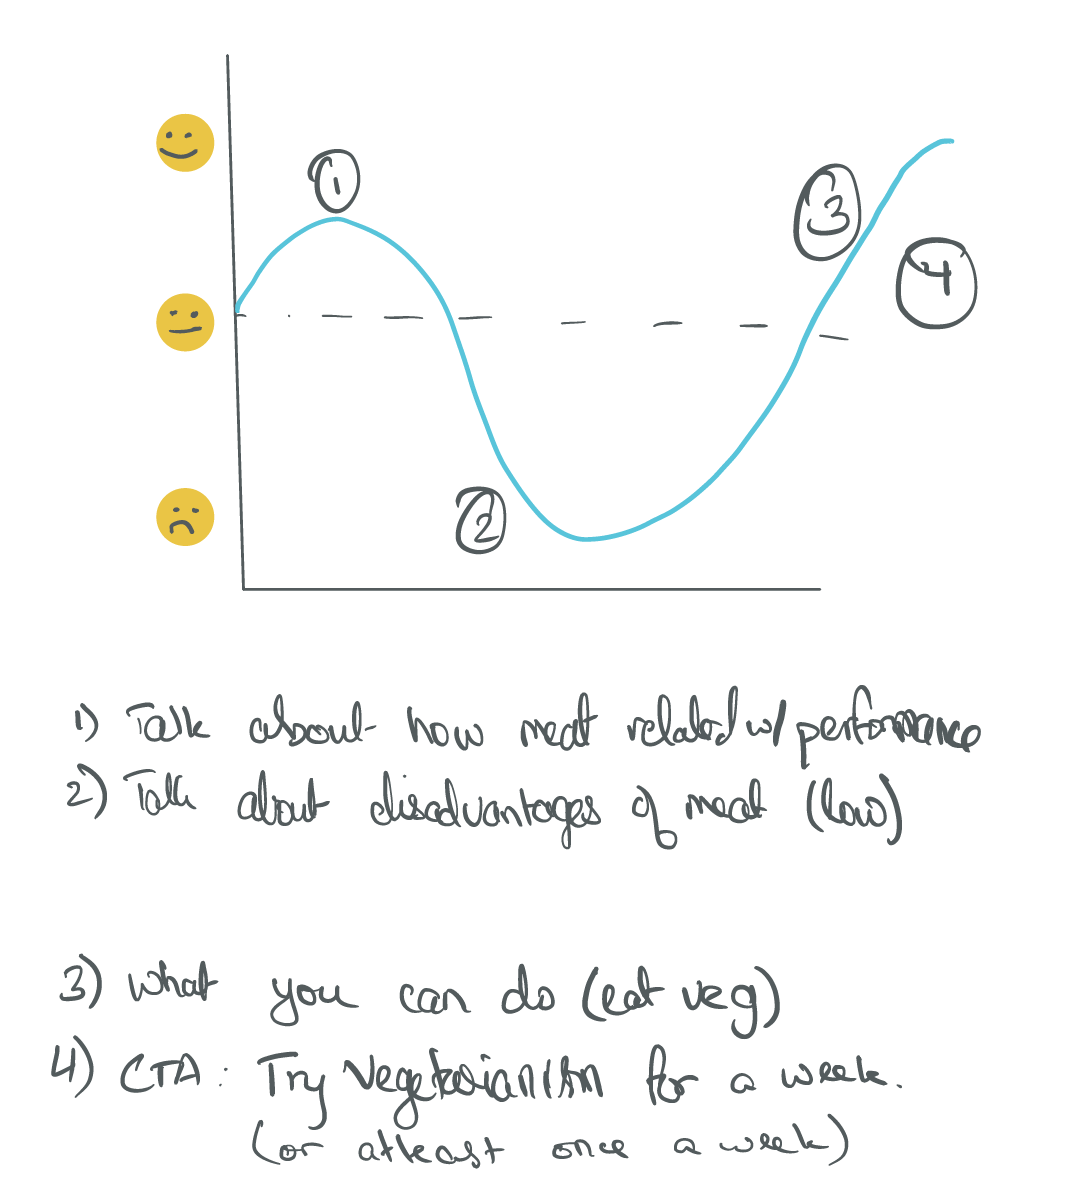 1
3
4
2
1) Talk about how meat related w/ performance
2) Talk about disadvantages of meat (low)
3) What you can do (eat veg)
4) CTA: Try Vegetarianism for a week.
(or atleast once a week)